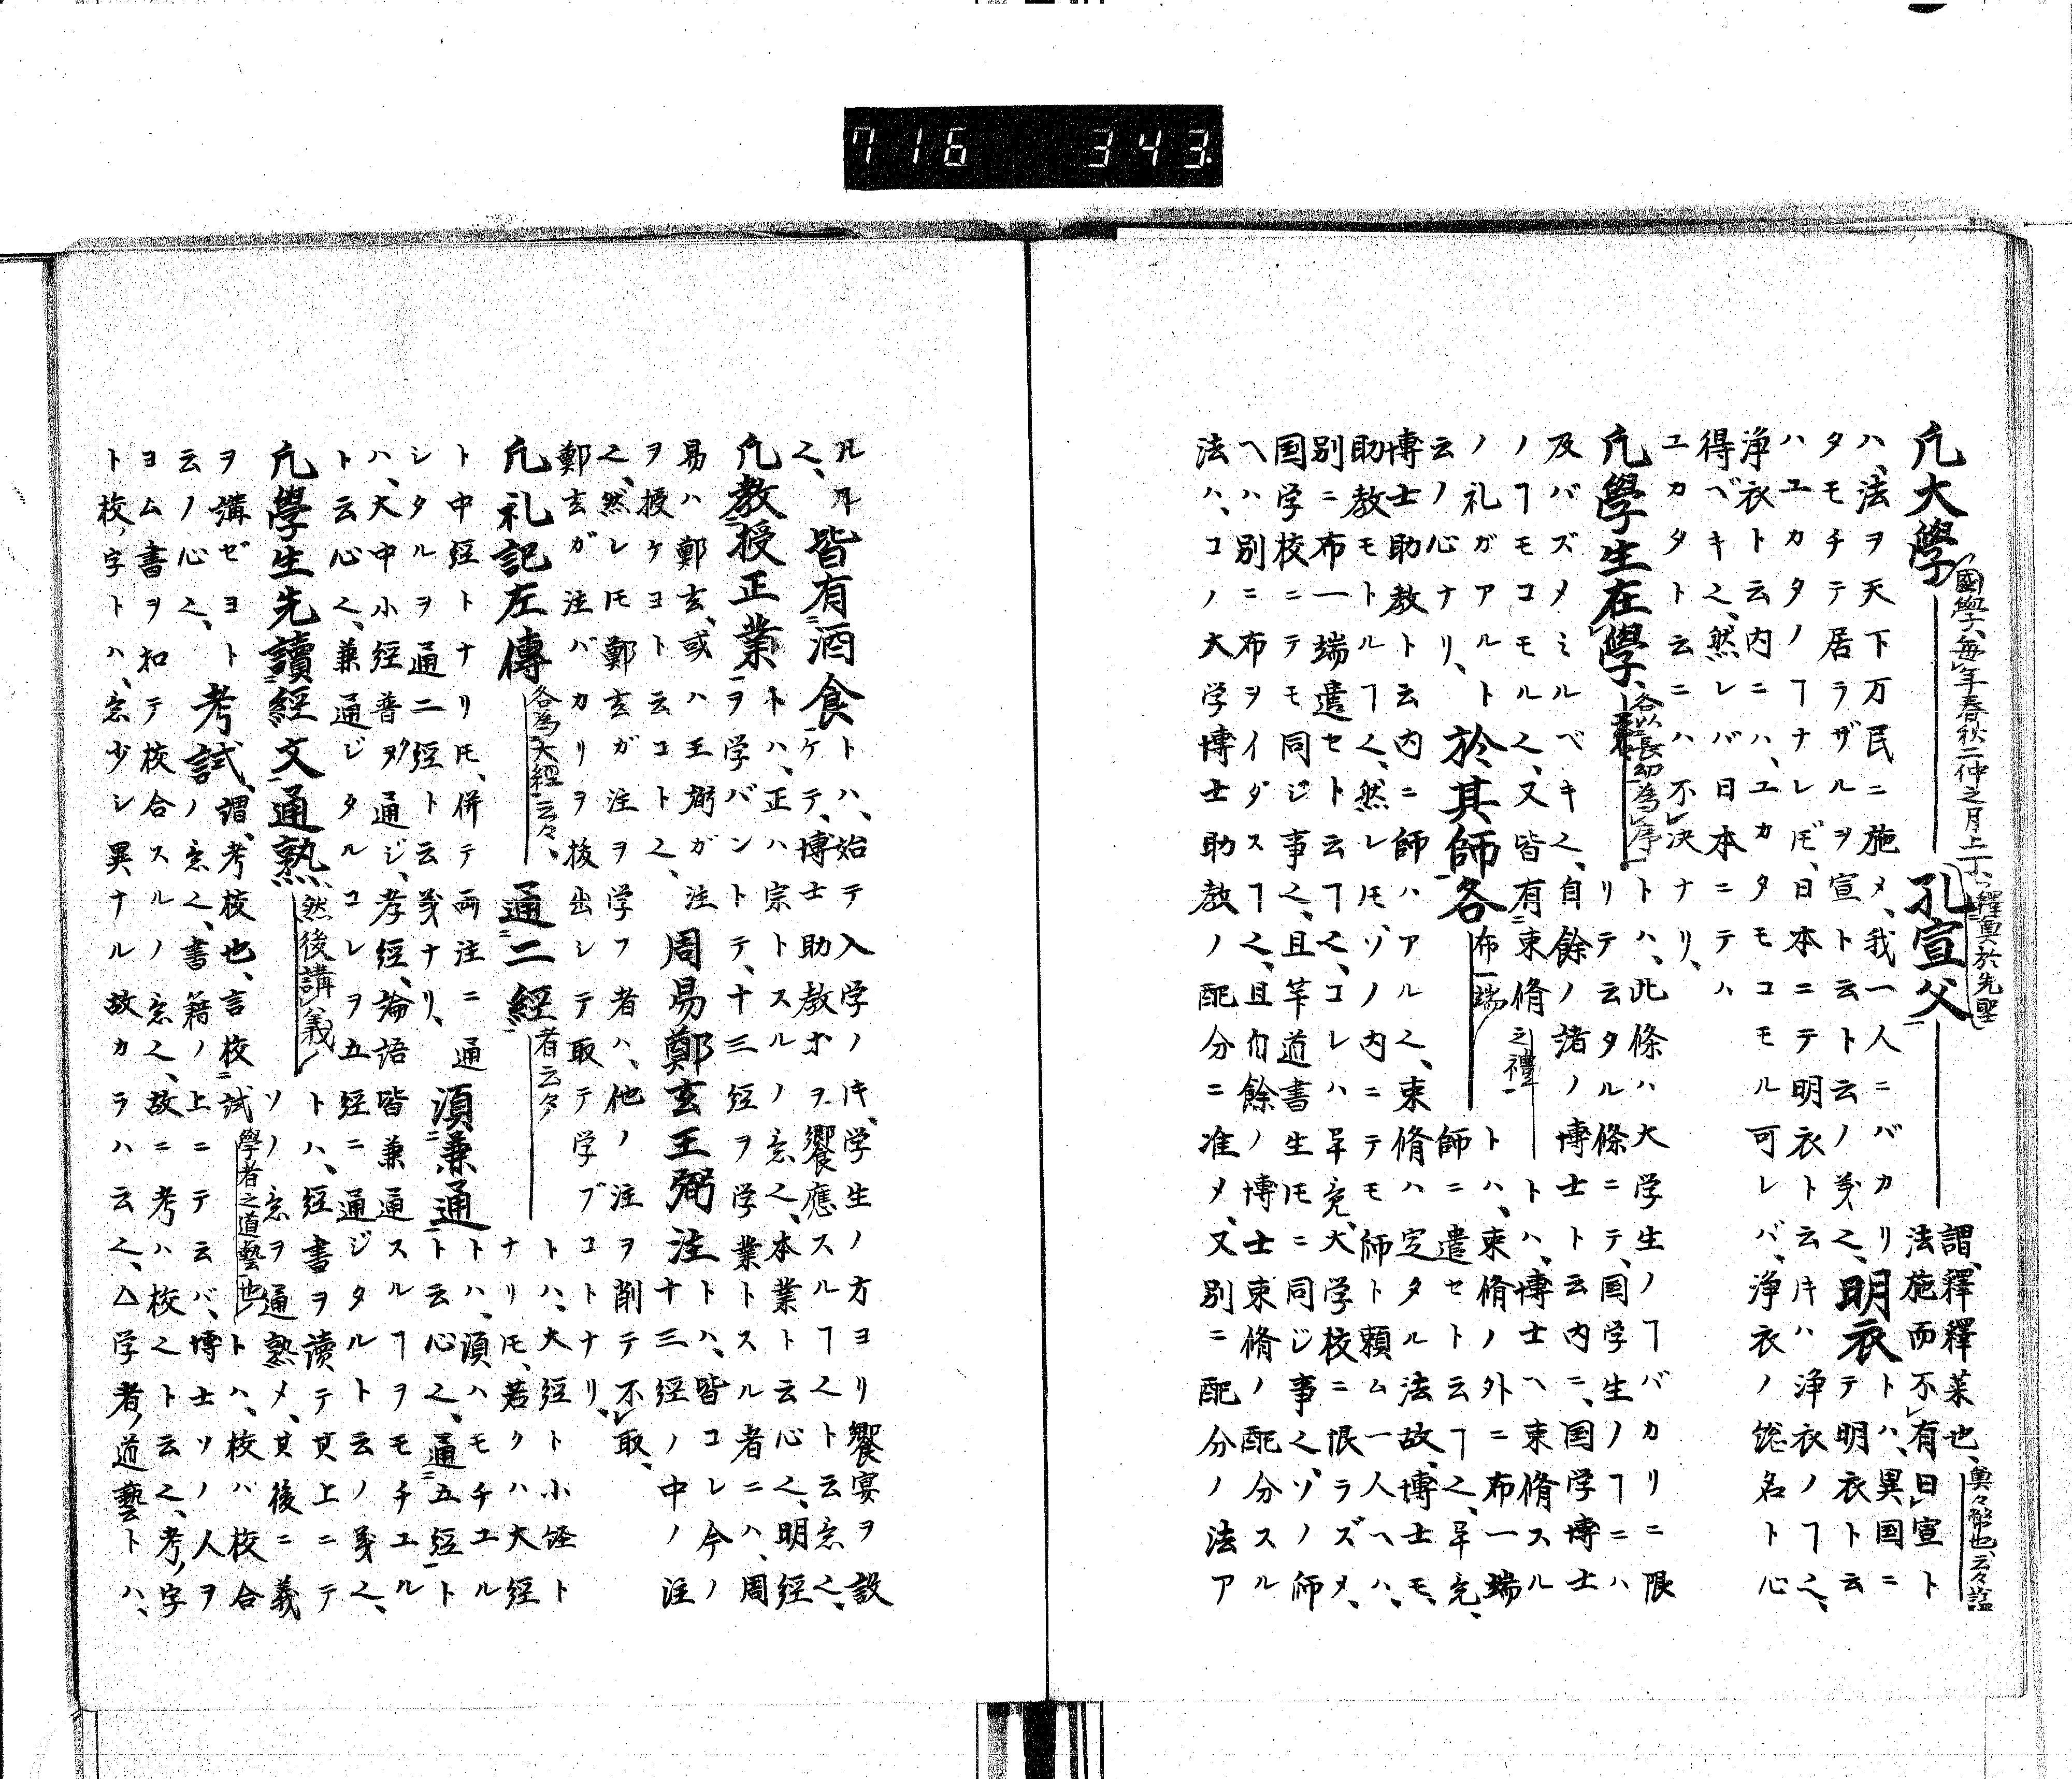 716 343.
凢大學
國學、毎年春秋二仲之月上丁、釋奠於先聖
孔宣父
謂、釋釋菜也、
奠々幣也、云々諡
法施而不有曰宣ト
ハ、法ヲ天下万民ニ施メ、我一人ニバカリ
タモチテ居ラザルヲ宣ト云ト云ノ義之、
明衣
トハ、異国ニ
テ明衣ト云
ハユカタノヿナレ𪜈、日本ニテ明衣ト云キハ浄衣ノヿ之、
浄衣ト云内ニハ、ユカタモコモル可レバ、浄衣ノ総名ト心
得ベキ之、然レバ日本ニテハ
ユカタト云ニハ不決ナリ、
凢學生在學、
各以長幼為序
トハ、此條ハ大学生ノヿバカリニ限
リテ云タル條ニテ、国学生ノヿニハ
及バズメミルベキ之、自餘ノ諸ノ博士ト云内ニ、国学博士
ノヿモコモル之、又皆有束脩
之禮
トハ、博士ヘ束脩スル
ノ礼ガアルト
於其師各
布一端
トハ、束脩ノ外ニ布一端
云ノ心ナリ、
師ニ遣セト云ヿ之、
博士助教ト云内ニ師ハアル之、束脩ハ定タル法故、博士モ、
助教モトルヿ之、然レ𪜈、ソノ内ニテモ師ト頼ム一人ヘハ、
別ニ布一端遣セト云ヿ之、コレハ大学校ニ限ラズメ、
国学校ニテモ同ジ事之、且竿道書生𪜈ニ同ジ事之、ソノ師
ヘハ別ニ布ヲイダスヿ之、且自餘ノ博士束脩ノ配分スル
法ハ、コノ大学博士助教ノ配分ニ准メ、又別ニ配分ノ法ア
ル
之、
皆有酒食
トハ、始テ入学ノキ、学生ノ方ヨリ饗宴ヲ設
ケテ、博士助教ホヲ饗應スルヿ之ト云意之、
凢教授正業
トハ、正ハ宗トスルノ意之、本業ト云心之、明経
ヲ学バントテ、十三経ヲ学業トスル者ニハ、周
易ハ鄭玄、或ハ王弼ガ注
周易鄭玄王弼注
トハ、皆コレ今ノ
十三経ノ中ノ注
ヲ授ケヨト云コト之、
之、然レ𪜈鄭玄ガ注ヲ学フ者ハ、他ノ注ヲ削テ不取、
鄭玄ガ注バカリヲ抜出シテ取テ学ブコトナリ、
凢礼記左傳
各為大經云々、
通二經
者云々
トハ、大経ト小経ト
ナリ𪜈、若クハ大経
ト中経トナリ𪜈、併テ両注ニ通
シタルヲ通二経ト云義ナリ、
須兼通
トハ、須ハモチユル
ト云心之、通五経ト
ハ、大中小経普ク通ジ、孝経、論語皆兼通スルヿヲモチユル
ト云心之、兼通ジタルコレヲ五経ニ通ジタルト云ノ義之、
凢學生先讀經文通熟
然後講義
トハ、経書ヲ讀テ其上ニテ
ソノ意ヲ通熟メ、其後ニ義
ヲ講ゼヨト
云ノ心之、
考試
謂、考校也、言校試
學者之道藝也
トハ、校バ校合
ノ意之、書籍ノ上ニテ云バ、博士ソノ人ヲ
ヨム書ヲ和テ校合スルノ意之、故ニ考ハ校之ト云之、考ノ字
ト校ノ字トハ、意少シ異ナル故カラハ云之、△学者ノ道藝トハ、